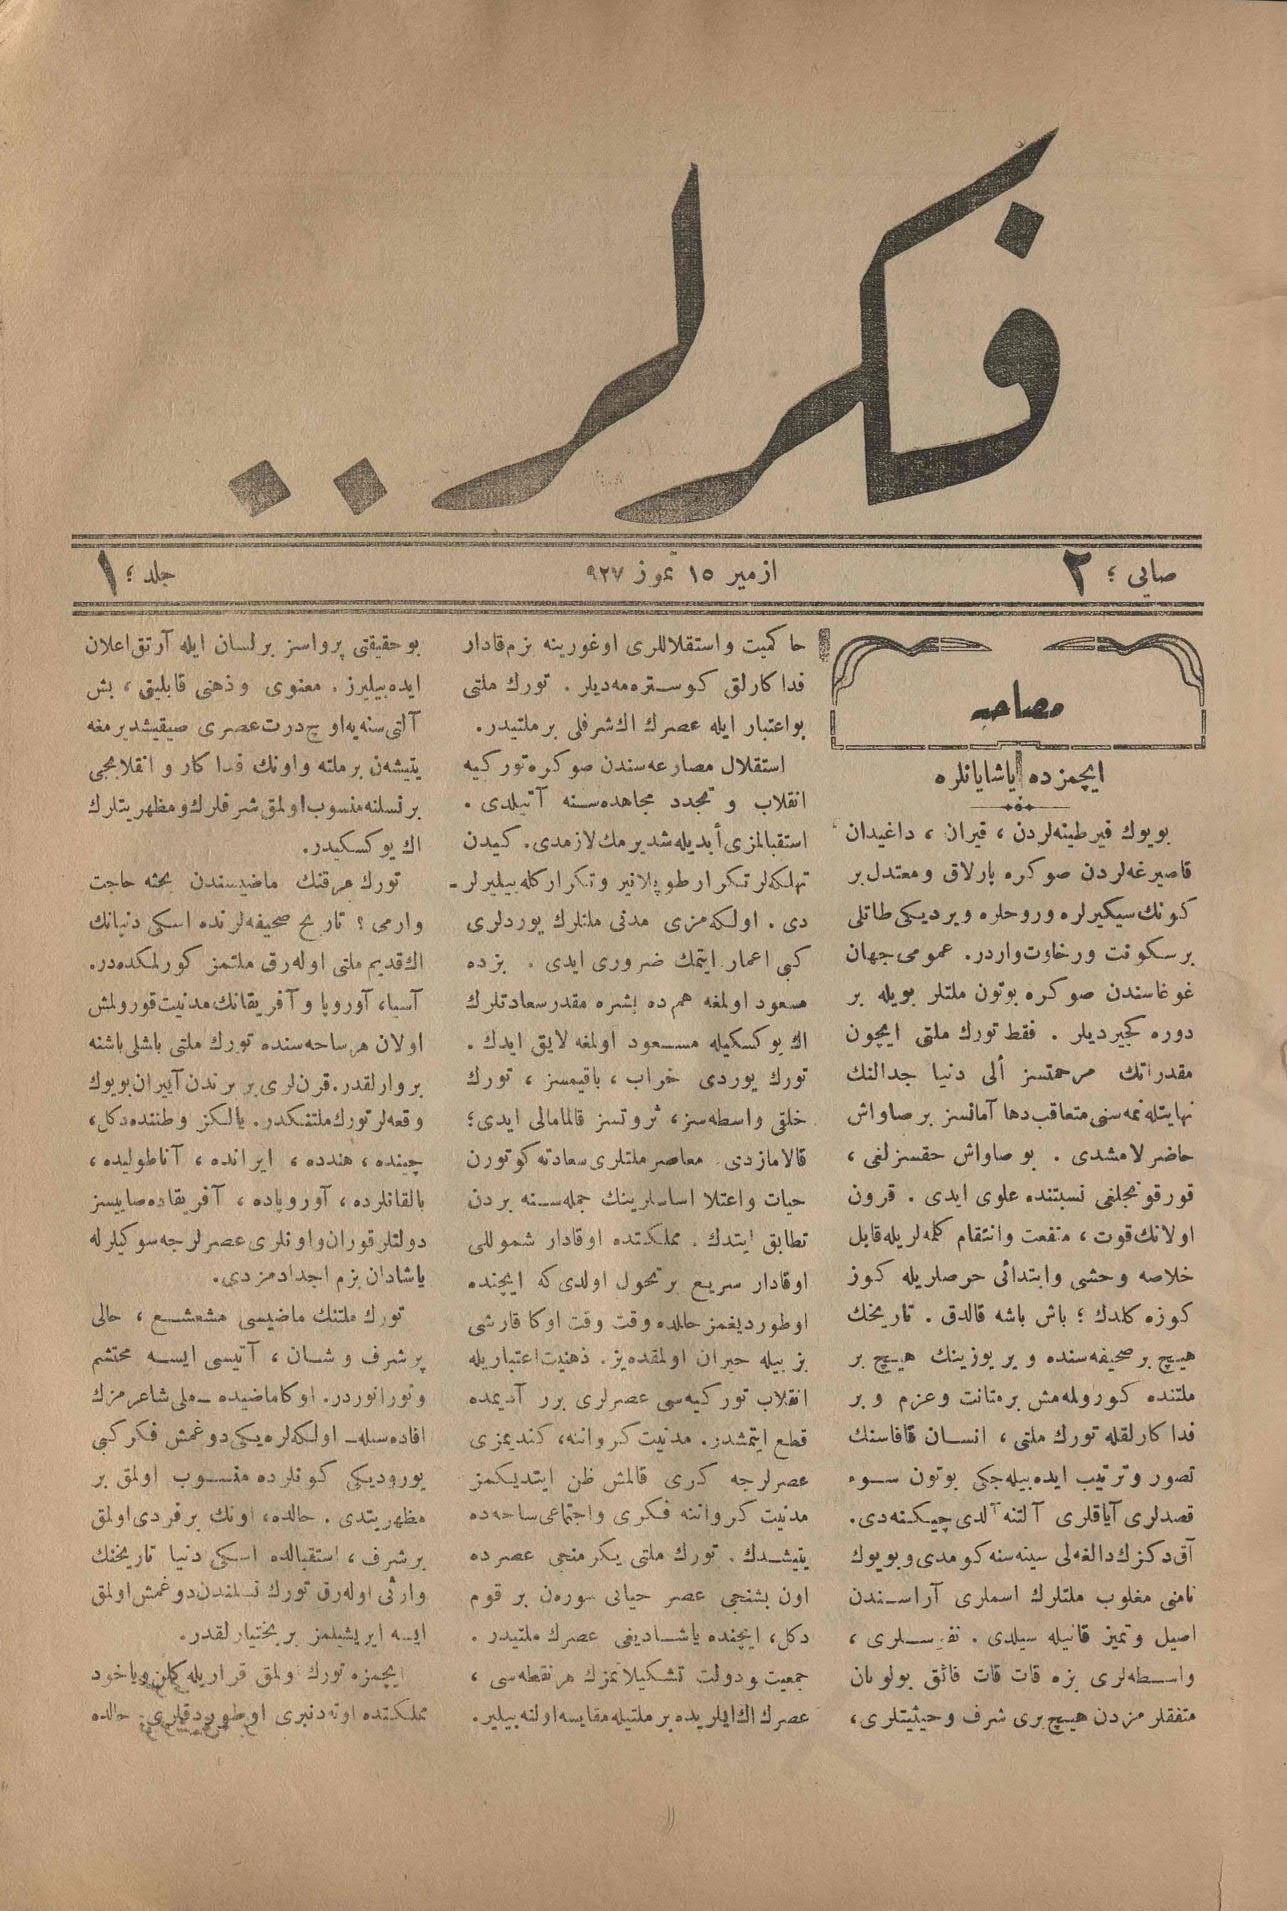 فكرلر..
صایی ؛ ٢
ازمیر ١٥ تموز ٩٢٧
جلد ؛ ١
مصاحبه
ایچمزده یاشایانلره
بویوك فیرطینه‌لردن ، قیران ، داغیدان
قاصیرغه‌لردن صوكره پارلاق ومعتدل بر
كونك سیكیرلره وروحلره ویردیكی طاتلی
بر سكونت ورخاوت واردر. عمومی جهان
غوغاسندن صوكره بوتون ملتلر بویله بر
دوره كچیردیلر . فقط تورك ملتی ایچون
مقدراتك مرحمتسز ألی دنیا جدالنك
نهایتلنمه‌سنی متعاقب دها آمانسز بر صاواش
حاضرلامشدی . بو صاواش حقسزلغی ،
قورقونجلغی نسبتنده علوی ایدی . قرون
اولانك قوت ، منفعت وانتقام كله‌لریله قابل
خلاصه وحشی وابتدائی حرصلریله كوز
كوزه كلدك ؛ باش باشه قالدق . تاریخك
هیچ بر صحیفه‌سنده و یر یوزینك هیچ بر
ملتنده كورولمه‌مش بر متانت وعزم و بر
فداكارلقله تورك ملتی ، انسان قافاسنك
تصور وترتیب ایده‌بیله‌جكی بوتون سوء
قصدلری آیاقلری آلتنه آلدی چیكنه‌دی.
آق دكزك دالغه‌لی سینه‌سنه كومدی و بویوك
نامنی مغلوب ملتلرك اسملری آراسندن
اصیل وتمیز قانیله سیلدی . نفوسلری ،
واسطه‌لری بزه قات قات فائق بولونان
متفقلرمزدن هیچ بری شرف وحیثیتلری،
حاكمیت واستقلاللری اوغورینه بزم قادار
فداكارلق كوستره‌مه‌دیلر . تورك ملتی
بواعتبار ایله عصرك اك شرفلی بر ملتیدر.
استقلال مصارعه‌سندن صوكره توركیه
انقلاب و تجدد مجاهده‌سنه آتیلدی .
استقبالمزی أبدیله‌شدیرمك لازمدی. كیدن
تهلكه‌لر تكرار طوپلانیر وتكرار كله‌بیلیرلر-
دی . اولكه‌مزی مدنی ملتلرك یوردلری
كبی اعمار ایتمك ضروری ایدی . بزده
مسعود اولمغه هم‌ده بشره مقدر سعادتلرك
اك یوكسكیله مسعود اولمغه لایق ایدك .
تورك یوردی خراب ، باقیمسز ، تورك
خلقی واسطه‌سز، ثروتسز قالمامالی ایدی؛
قالامازدی. معاصر ملتلری سعادته كوتورن
حیات واعتلا اساسلرینك جمله‌سنه بردن
تطابق ایتدك . مملكتده اوقادار شموللی
اوقادار سریع بر تحول اولدی كه ایچنده
اوطوردیغمز حالده وقت وقت اوكا قارشی
بز بیله حیران اولمقده‌یز. ذهنیت اعتباریله
انقلاب توركیه‌سی عصرلری برر آدیمده
قطع ایتمشدر. مدنیت كرواننه، كندیمزی
عصرلرجه كری قالمش ظن ایتدیكمز
مدنیت كرواننه فكری واجتماعی ساحه‌ده
یتیشدك . تورك ملتی یكرمنجی عصرده
اون بشنجی عصر حیاتی سوره‌ن بر قوم
دكل، ایچنده یاشادیغی عصرك ملتیدر .
جمعیت ودولت تشكیلاتمزك هر نقطه‌سی ،
عصرك اك ایلریده بر ملتیله مقایسه اولنه‌بیلیر.
بو حقیقتی پرواسز بر لسان ایله آرتق اعلان
ایده‌بیلیرز . معنوی و ذهنی قابلیتی ، بش
آلتی سنه‌یه اوچ درت عصری صیقیشدیرمغه
یتیشه‌ن بر ملته و اونك فداكار و انقلابجی
بر نسلنه منسوب اولمق شرفلرك ومظهریتلرك
اك یوكسكیدر.
تورك عرقنك ماضیسندن بحثه حاجت
وارمی ؟ تاریخ صحیفه‌لرنده اسكی دنیانك
اك قدیم ملتی اوله‌رق ملتمز كورلمكده‌در.
آسیا، آوروپا و آفریقانك مدنیت قورولمش
اولان هر ساحه‌سنده تورك ملتی باشلی باشنه
بر وارلقدر. قرن‌لری بر برندن آییران بویوك
وقعه‌لر تورك ملتنكدر. یالكز وطننده دكل،
چینده ، هندده ، ایرانده ، آناطولیده ،
بالقانلرده ، آوروپاده ، آفریقاده صاییسز
دولتلر قوران واونلری عصرلرجه سوكیلرله
یاشادان بزم اجدادمزدی.
تورك ملتنك ماضیسی مشعشع ، حالی
پر شرف و شان ، آتیسی ایسه محتشم
ونورانوردر. اوكا ماضیده -ملی شاعرمزك
افاده‌سیله- اولكه‌لره یكی دوغمش فكر كبی
یورودیكی كونلرده منسوب اولمق بر
مظهریتدی . حالده، اونك بر فردی اولمق
بر شرف ، استقبالده اسكی دنیا تاریخنك
وارثی اوله‌رق تورك نسلندن دوغمش اولمق
ایسه ایریشیلمز بر بختیارلقدر.
ایچمزه تورك اولمق قراریله كلن ویاخود
مملكتده اوته‌دنبری اوطوردقلری حالده